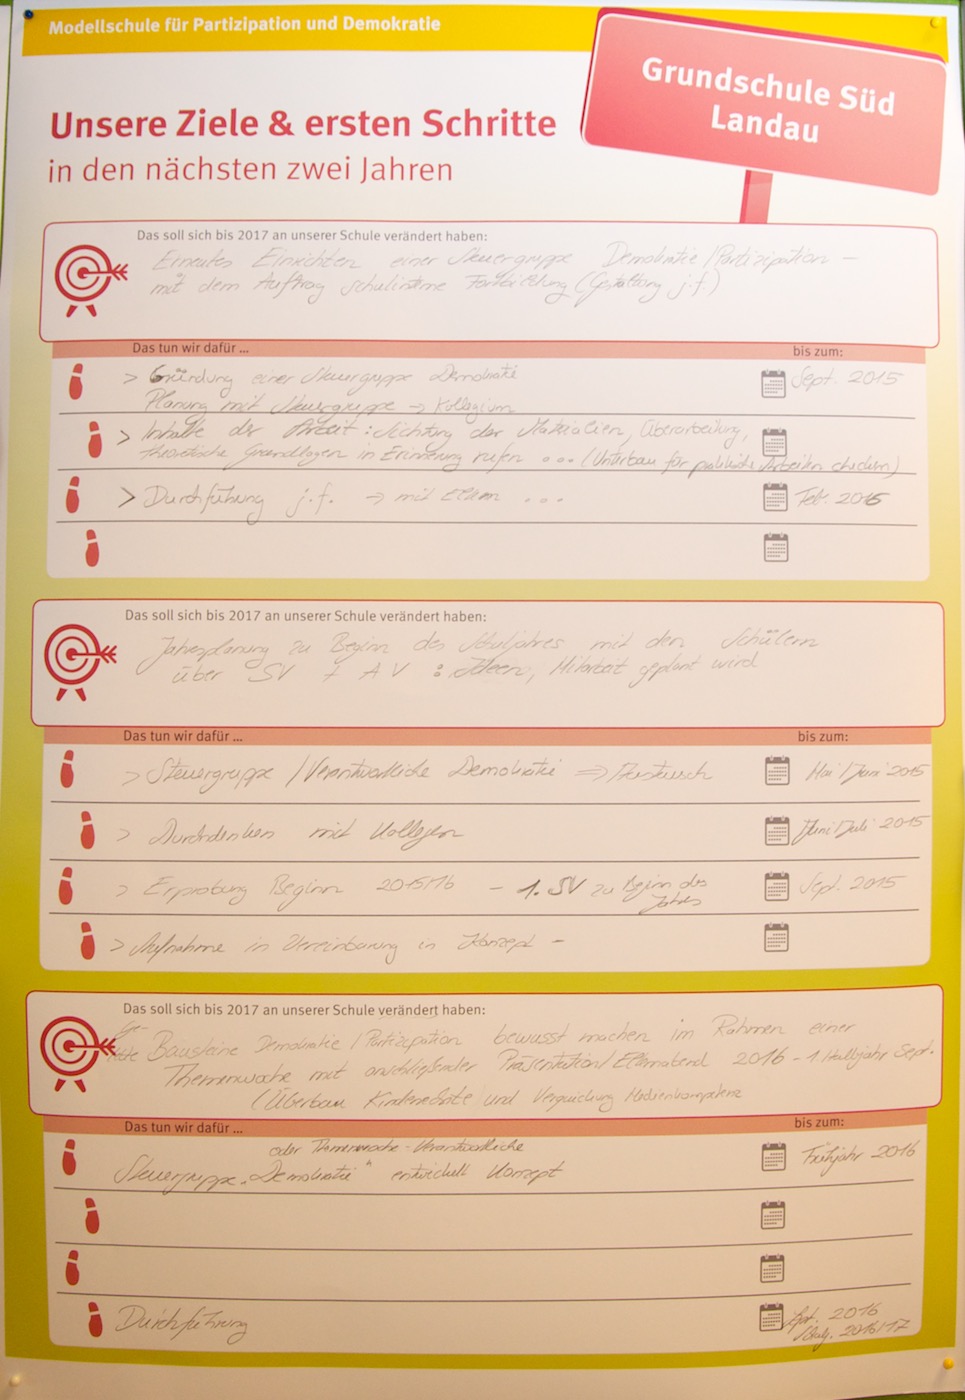 Modellschule für Partizipation und Demokratie
Grundschule Süd
Landau
Unsere Ziele & ersten Schritte
in den nächsten zwei Jahren
Das soll sich bis 2017 an unserer Schule verändert haben:
Erneutes Einrichten einer Steuergruppe Demokratie/Partizipation –
mit dem Auftrag schulinterne Fortbildung (Gestaltung j.f.)
Das tun wir dafür ...
bis zum:
> Gründung einer Steuergruppe Demokratie
Sept. 2015
Planung mit Steuergruppe → Kollegium
> Inhalte der Arbeit: Sichtung der Materialien, Überarbeitung,
theoretische Grundlagen in Erinnerung rufen ... (Unterbau für praktische Arbeiten checken)
> Durchführung j.f. → mit Eltern ...
Feb. 2016
Das soll sich bis 2017 an unserer Schule verändert haben:
Jahresplanung zu Beginn des Schuljahres mit den Schülern
über SV + AV : Ideen, Mitarbeit geplant wird
Das tun wir dafür ...
bis zum:
> Steuergruppe / Verantwortliche Demokratie ⇒ Austausch
Mai/Juni 2015
> Durchdenken mit Kollegen
Juni/Juli 2015
> Erprobung Beginn 2015/16 – 1. SV zu Beginn des
Jahres
Sept. 2015
> Aufnahme in Vereinbarung in Konzept –
Das soll sich bis 2017 an unserer Schule verändert haben:
Bausteine Demokratie/Partizipation bewusst machen im Rahmen einer
Themenwoche mit anschließender Präsentation/Elternabend 2016 – 1. Halbjahr Sept.
(Überbau Kinderrechte und Verquickung Medienkompetenz
Das tun wir dafür ...
bis zum:
oder Themenwoche-Verantwortliche
Steuergruppe „Demokratie" entwickelt Konzept
Frühjahr 2016
Durchführung
2016
2016/17